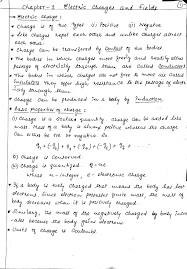 Chapter-1 Electric Charges and Fields
Electric Charge :
Charge is of two types (i) positive (ii) Negative
Like charges repel each other and unlike charges attract
each other.
Charge can be transferred by contact of two bodies.
The bodies in which charges move freely and easily allow
passage of electricity through them are called conductors
The bodies in which charges are not free to move are called
Insulators. They offer high resistance to the passage of electricity through
them
Charge can be produced in a body by induction
Basic properties of charge :
(i) Charge is a scalar quantity, charge can be added like
mass. Mass of a body is always positive whereas the charge
can either be +ve or negative
q₁ + (-q₂) + (-q₃) + (-q₄) + q₅ + ...
(ii) Charge is conserved
(iii) Charge is quantised q = ne
where n - integer, e - electronic charge
If a body is +vely charged that means the body has lost
electrons. Since electron possesses finite mass, the mass of
body decreases when it is charged positively.
Similarly, the mass of the negatively charged body increases
because the body gains electrons
Units of charge is Coulomb